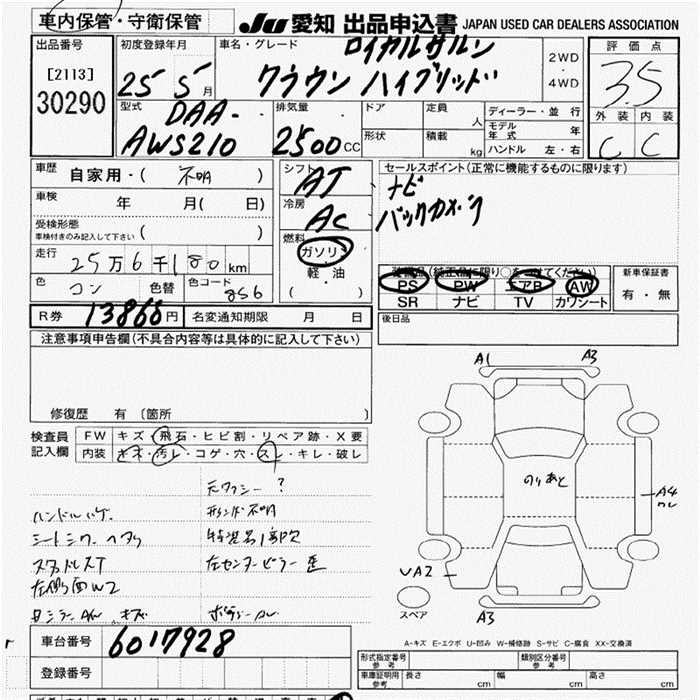 車内保管・守衛保管
JU 愛知 出品申込書 JAPAN USED CAR DEALERS ASSOCIATION
出品番号
[2113]
30290
初度登録年月
25 5月
車名・グレード
ロイヤルサルン
クラウン ハイブリッド
2WD
・
4WD
評価点
3.5
外装 内装
C C
型式
DAA-
AWS210
排気量
2500cc
ドア
定員
人
形状
積載
kg
ディーラー・並行
モデル年式 年
ハンドル 左・右
車歴
自家用・( 不明 )
車検
年 月( 日)
受検形態
車検付きのみ記入して下さい ( )
走行
25万6千180km
色
コン
色替
色コード
856
シフト
AT
冷房
AC
燃料
ガソリン
軽・油
( )
セールスポイント(正常に機能するものに限ります)
ナビ
バックカメラ
(純正品に限り○をつけてください)
PS PW エアB AW
SR ナビ TV カワシート
新車保証書
有・無
後日品
R券 13860円
名変通知期限 月 日
注意事項申告欄(不具合内容等は具体的に記入して下さい)
修復歴 有 〔箇所 〕
検査員記入欄
FW キズ・飛石・ヒビ割・リペア跡・X要
内装 キズ・汚レ・コゲ・穴・スレ・キレ・破レ
元タクシー ?
ハンドル
シートシワ
スタッドレスT
左側面W2
左センターピラー
キズ
A1
A3
のりあと
A4
UA2
A3
スペア
A-キズ E-エクボ U-凹み W-補修跡 S-サビ C-腐食 XX-交換済
車台番号 6017928
登録番号
形式指定番号
参考
類別区分番号
参考
車庫証明用
参考
長さ cm
幅 cm
高さ cm